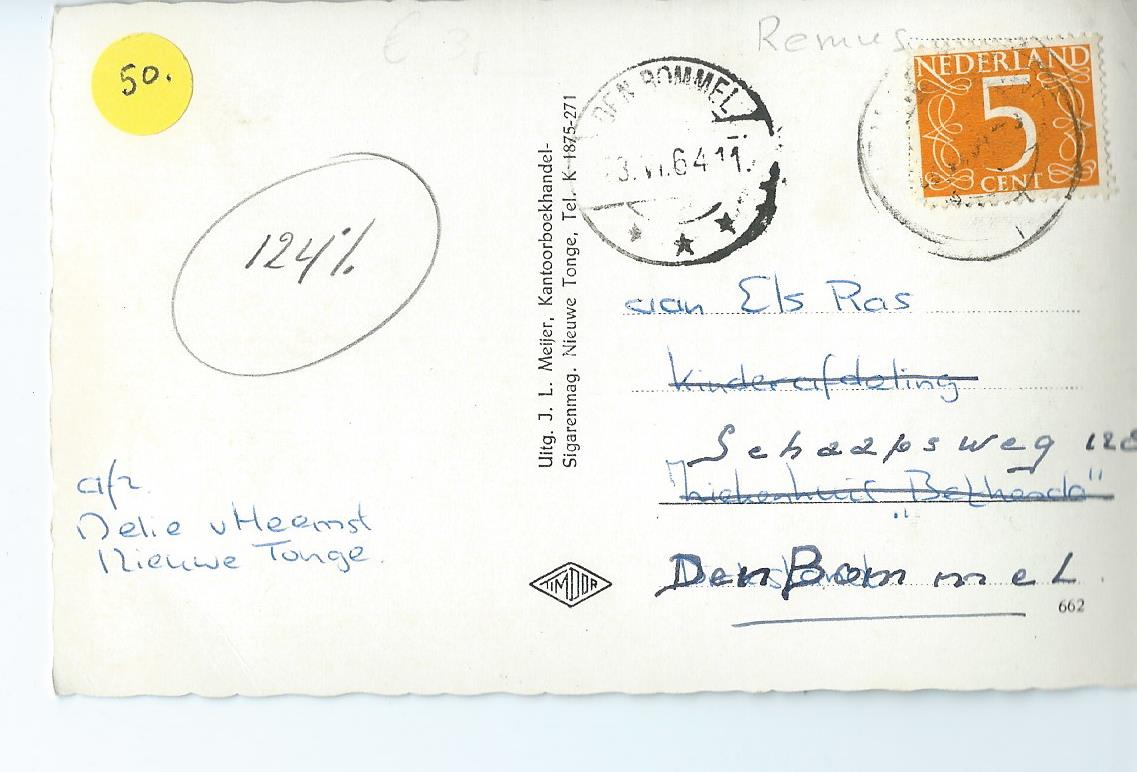 50.
€ 3,
Remus
NEDERLAND
5
CENT
DEN BOMMEL
3.VI.64 11.
124%
Uitg. J. L. Meijer, Kantoorboekhandel-
Sigarenmag. Nieuwe Tonge, Tel. K 1875-271
aan Els Ras
Kinderafdeling
Schaapsweg 128
"Ziekenhuis Bethesda"
Den Bommel.
662
afz.
Nelie v Heemst
Nieuwe Tonge.
TIMDOR